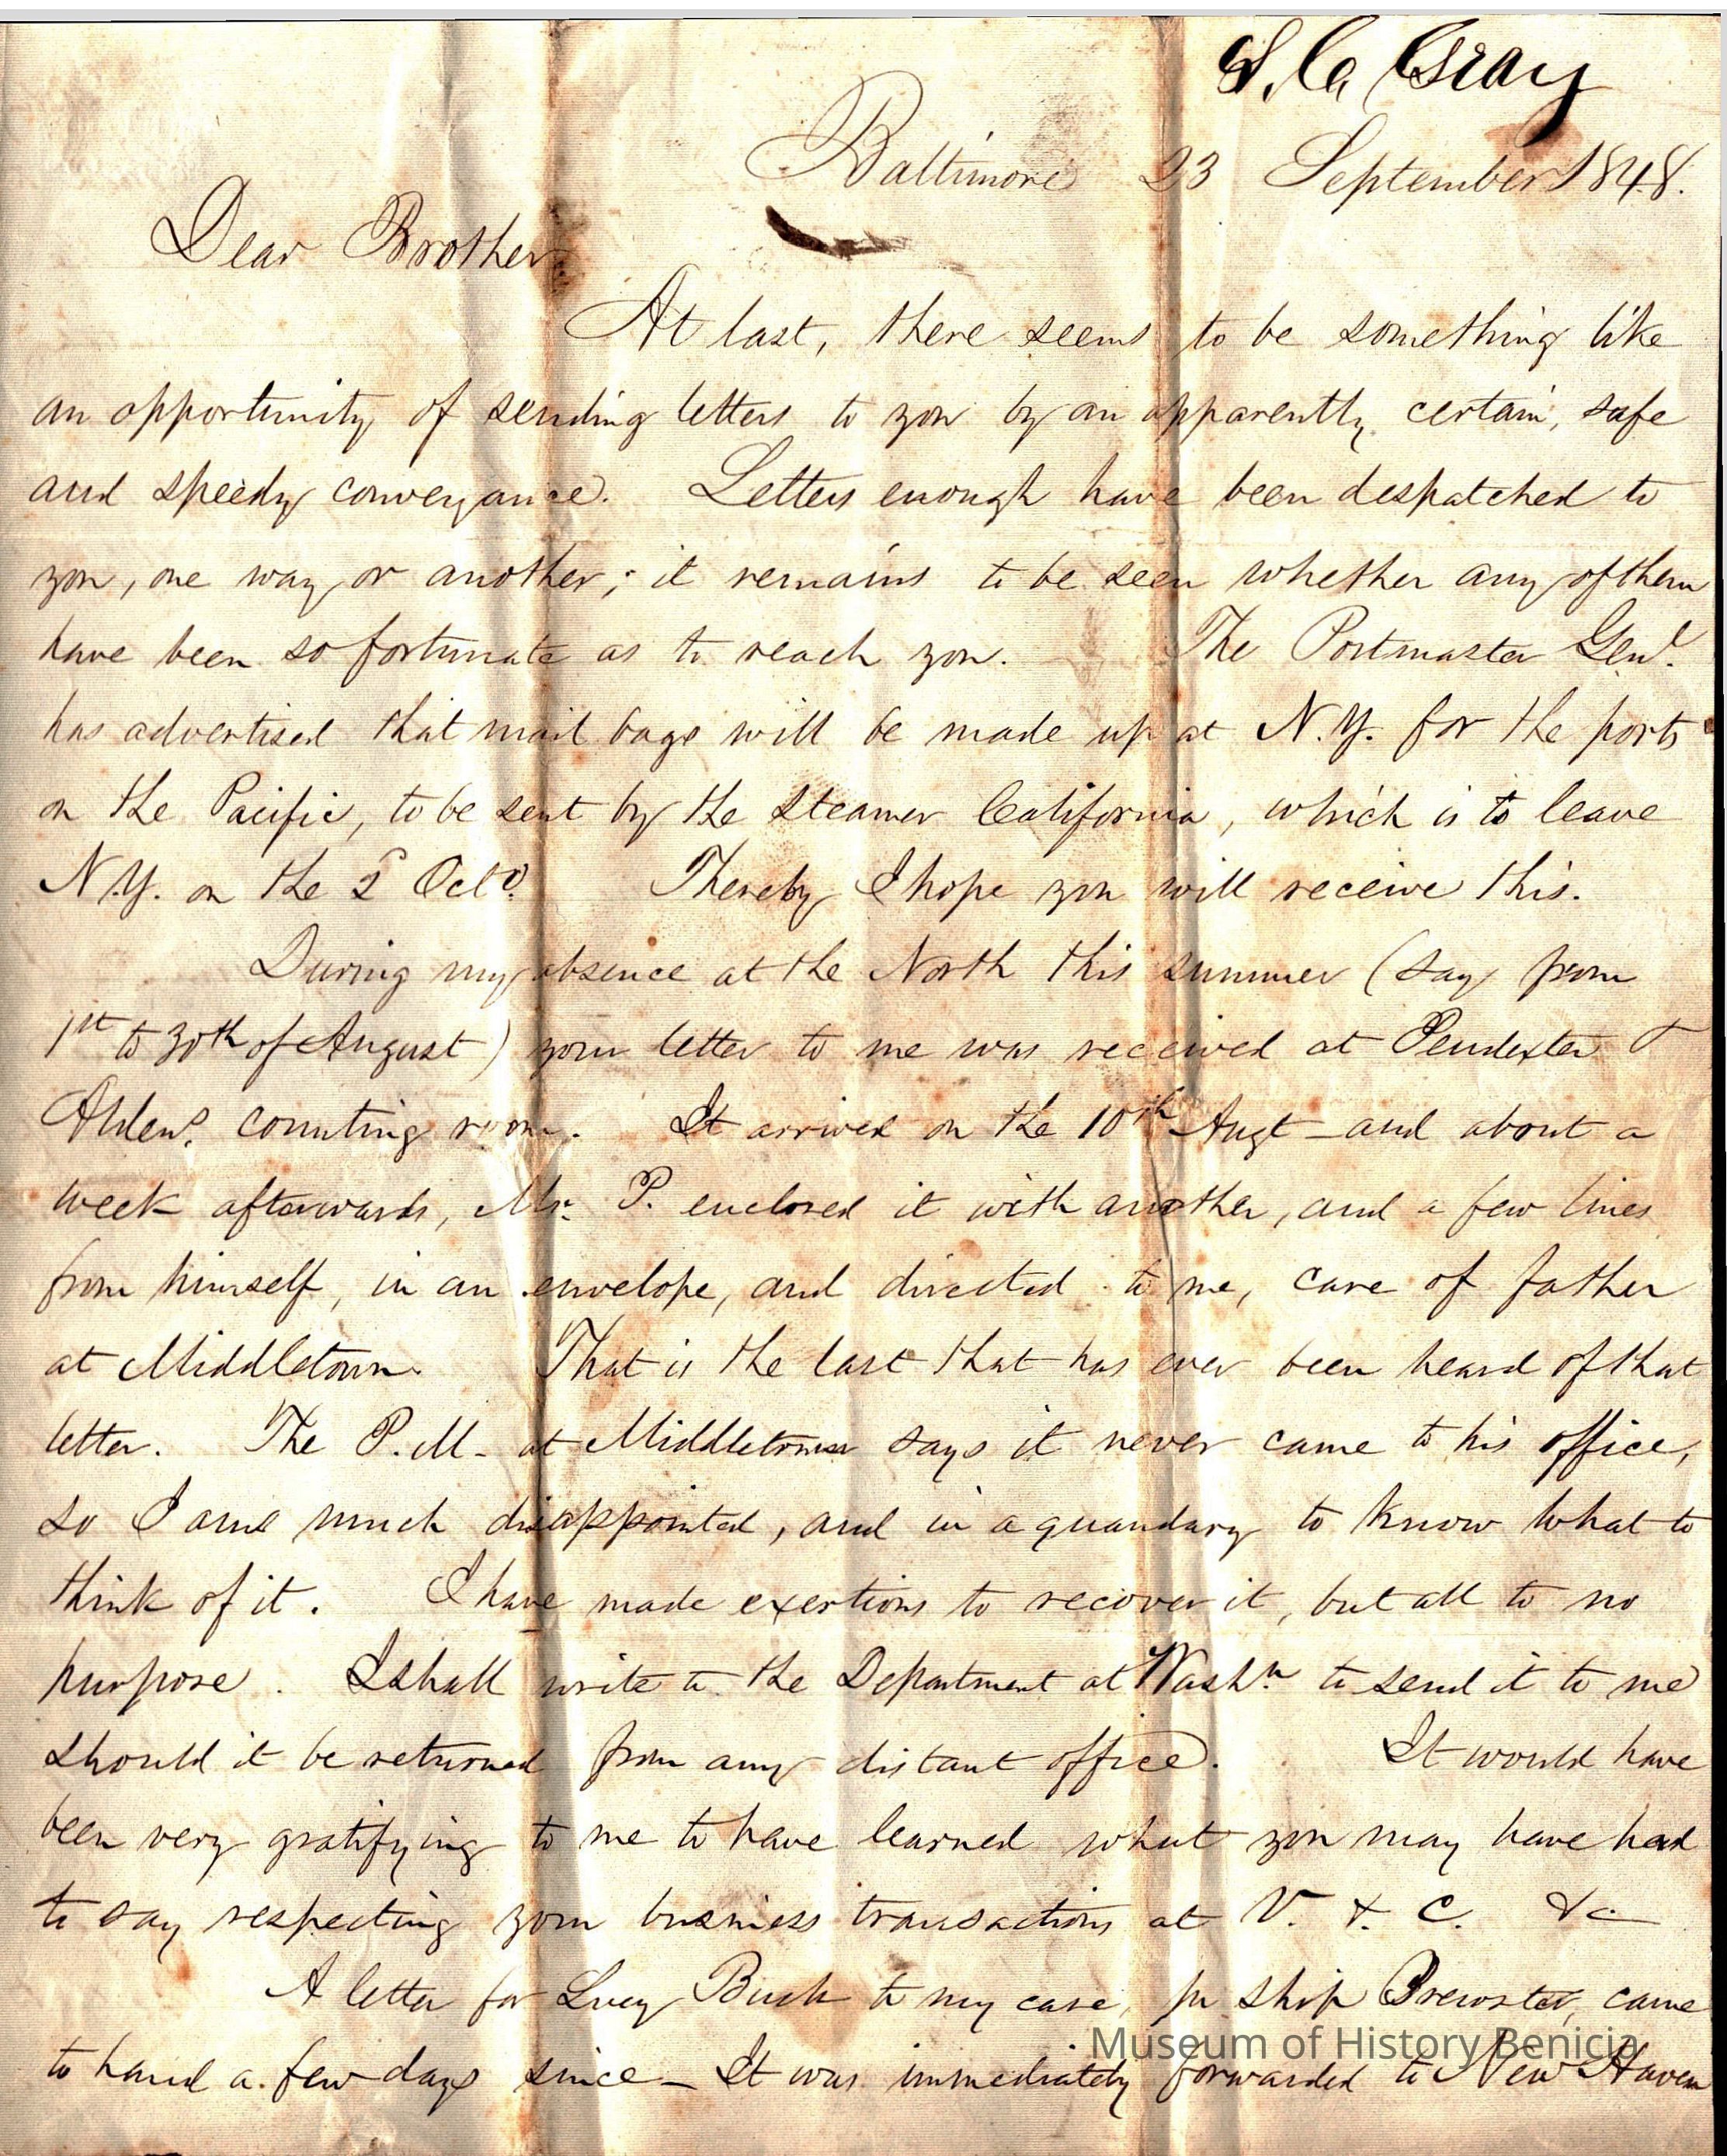 S. C. Gray
Baltimore 23 September 1848.
Dear Brother
At last, there seems to be something like
an opportunity of sending letters to you by an apparently certain, safe
and speedy conveyance. Letters enough have been despatched to
you, one way or another; it remains to be seen whether any of them
have been so fortunate as to reach you. The Postmaster Genl.
has advertised that mail bags will be made up at N.Y. for the ports
on the Pacific, to be sent by the steamer California, which is to leave
N.Y. on the 2 Octo. Thereby I hope you will receive this.
During my absence at the North this summer (say from
1st to 30th of August) your letter to me was received at Pendexter &
Aldens. counting room. It arrived on the 10th Augt - and about a
week afterwards, Mr. P. enclosed it with another, and a few lines
from himself, in an envelope, and directed to me, care of father
at Middletown. That is the last that has ever been heard of that
letter. The P.M. at Middletown says it never came to his office,
so I am much disappointed, and in a quandary to know what to
think of it. I have made exertions to recover it, but all to no
purpose. I shall write to the Department at Washn. to send it to me
should it be returned from any distant office. It would have
been very gratifying to me to have learned what you may have had
to say respecting your business transactions at V. & C. &c
A letter for Lucy Buck to my care, pr ship Brewster, came
to hand a few days since - It was immediately forwarded to New Haven
Museum of History Benicia